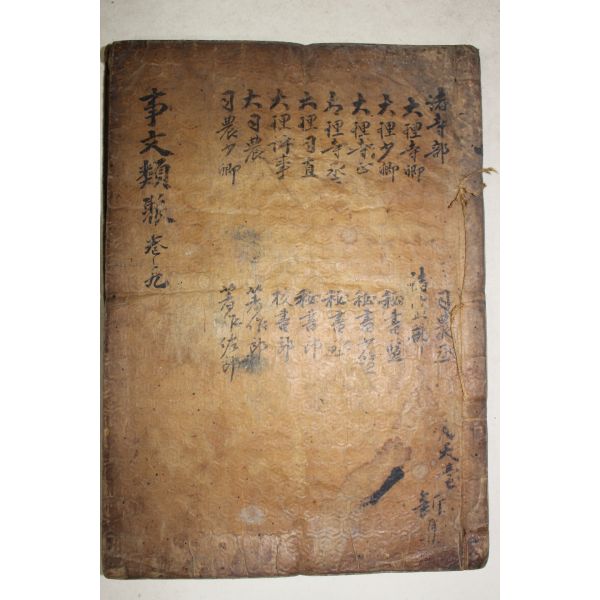 諸寺部
大理寺卿
大理少卿
大理寺正
大理寺丞
大理司直
大理評事
大司農
司農少卿
司農丞
諸
秘書監
秘書少監
秘書丞
秘書郎
校書郎
著作郎
著作佐郎
事文類聚 卷之九